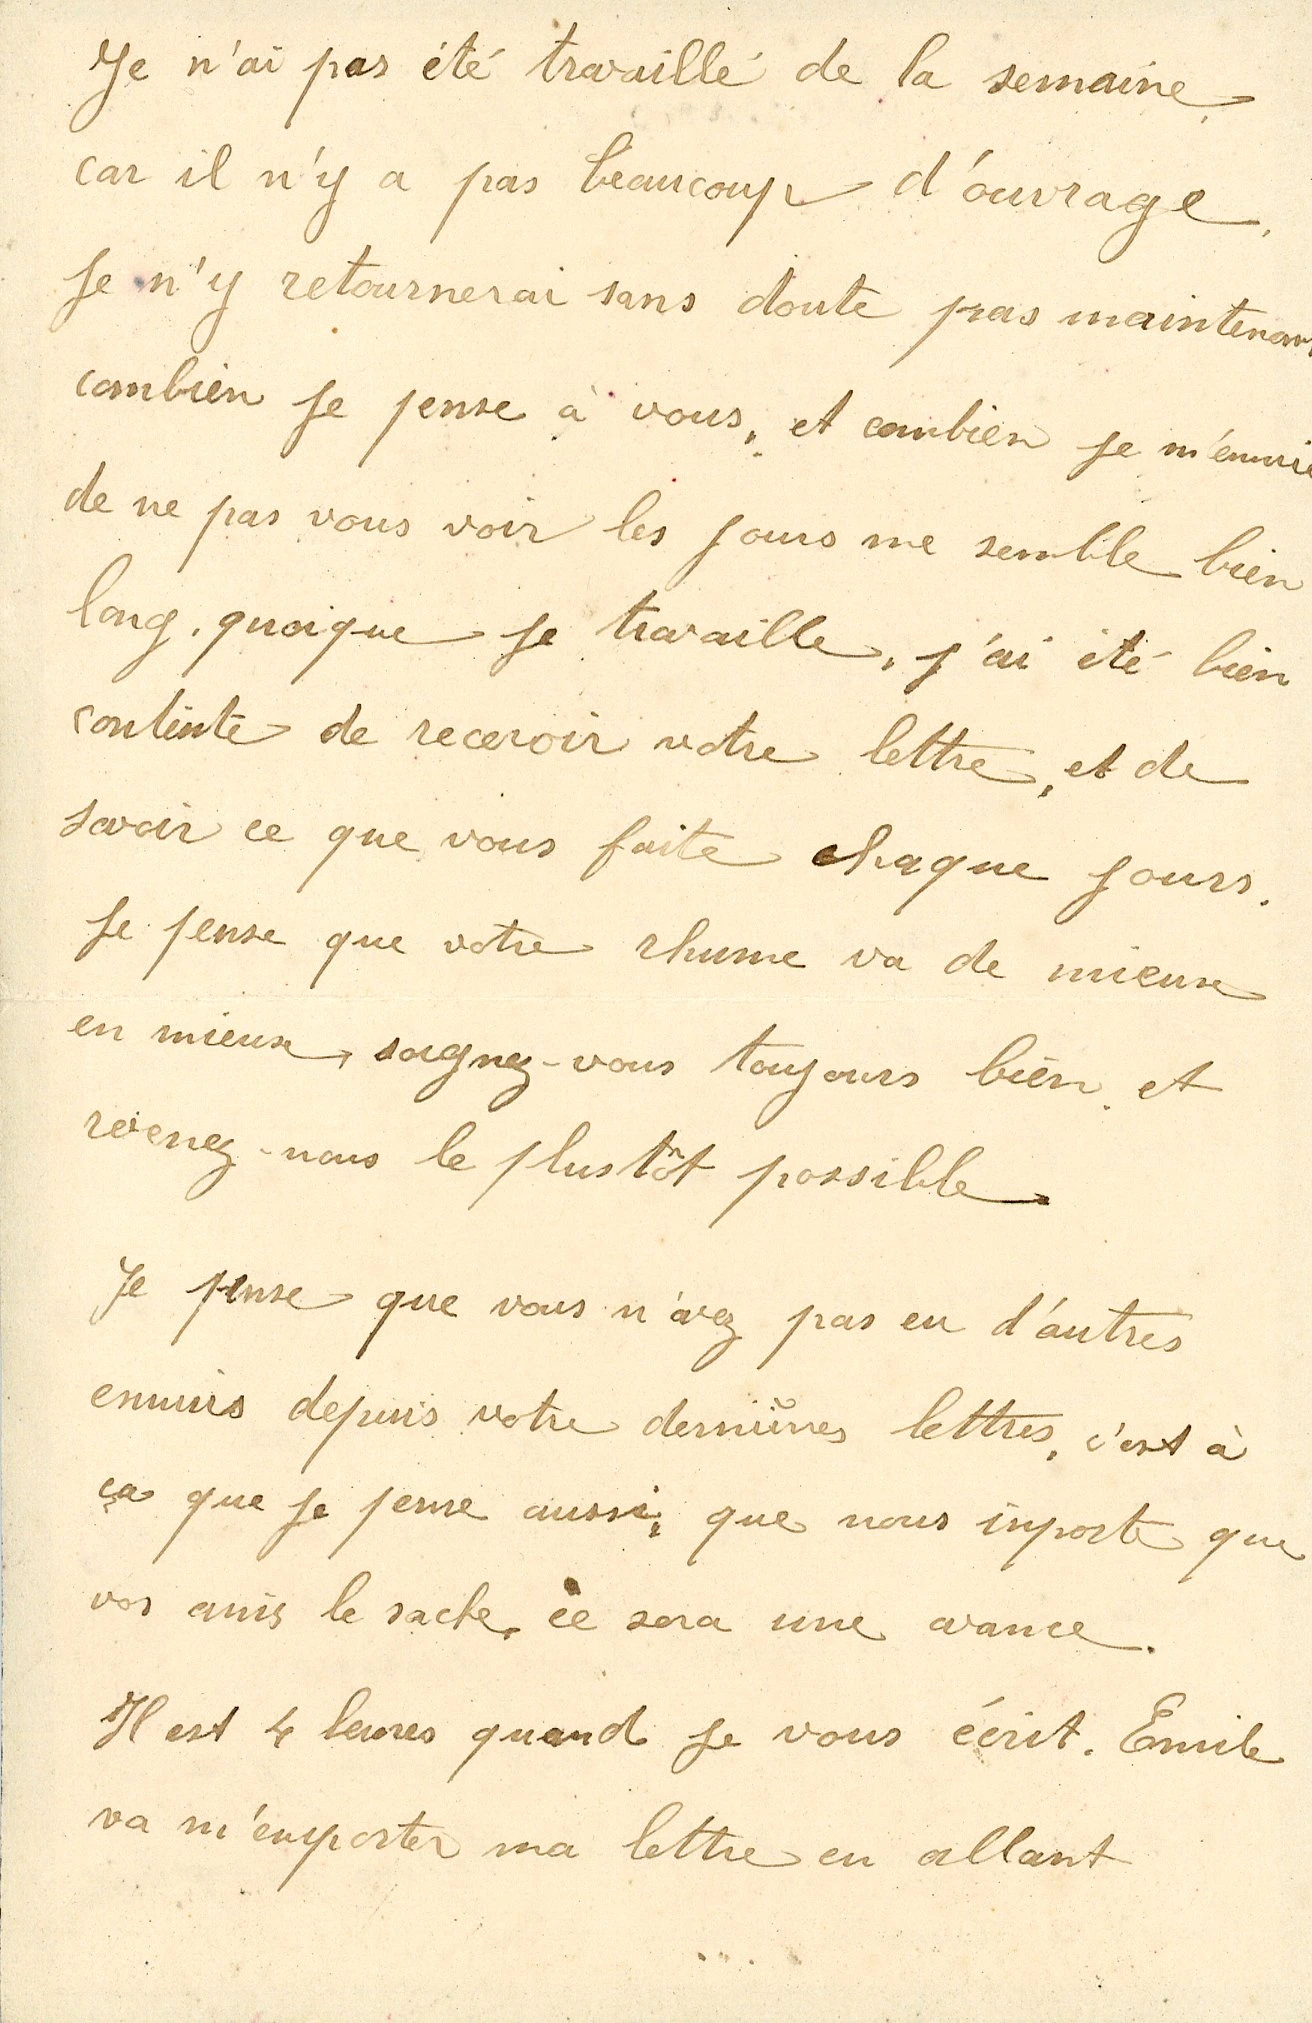 Je n'ai pas été travaillé de la semaine,
car il n'y a pas beaucoup d'ouvrage,
Je n'y retournerai sans doute pas maintenant
combien je pense à vous, et combien je m'ennuie
de ne pas vous voir les jours me semble bien
long, quoique je travaille, j'ai été bien
contente de recevoir votre lettre, et de
savoir ce que vous faite chaque jours.
Je pense que votre rhume va de mieux
en mieux, soignez-vous toujours bien, et
revenez-nous le plustôt possible.
Je pense que vous n'avez pas eu d'autres
ennuis depuis votre dernières lettres, c'est à
ça que je pense aussi, que nous inporte que
vos amis le sache, ce sera une avance.
Il est 4 heures quand je vous écrit. Emile
va m'emporter ma lettre en allant